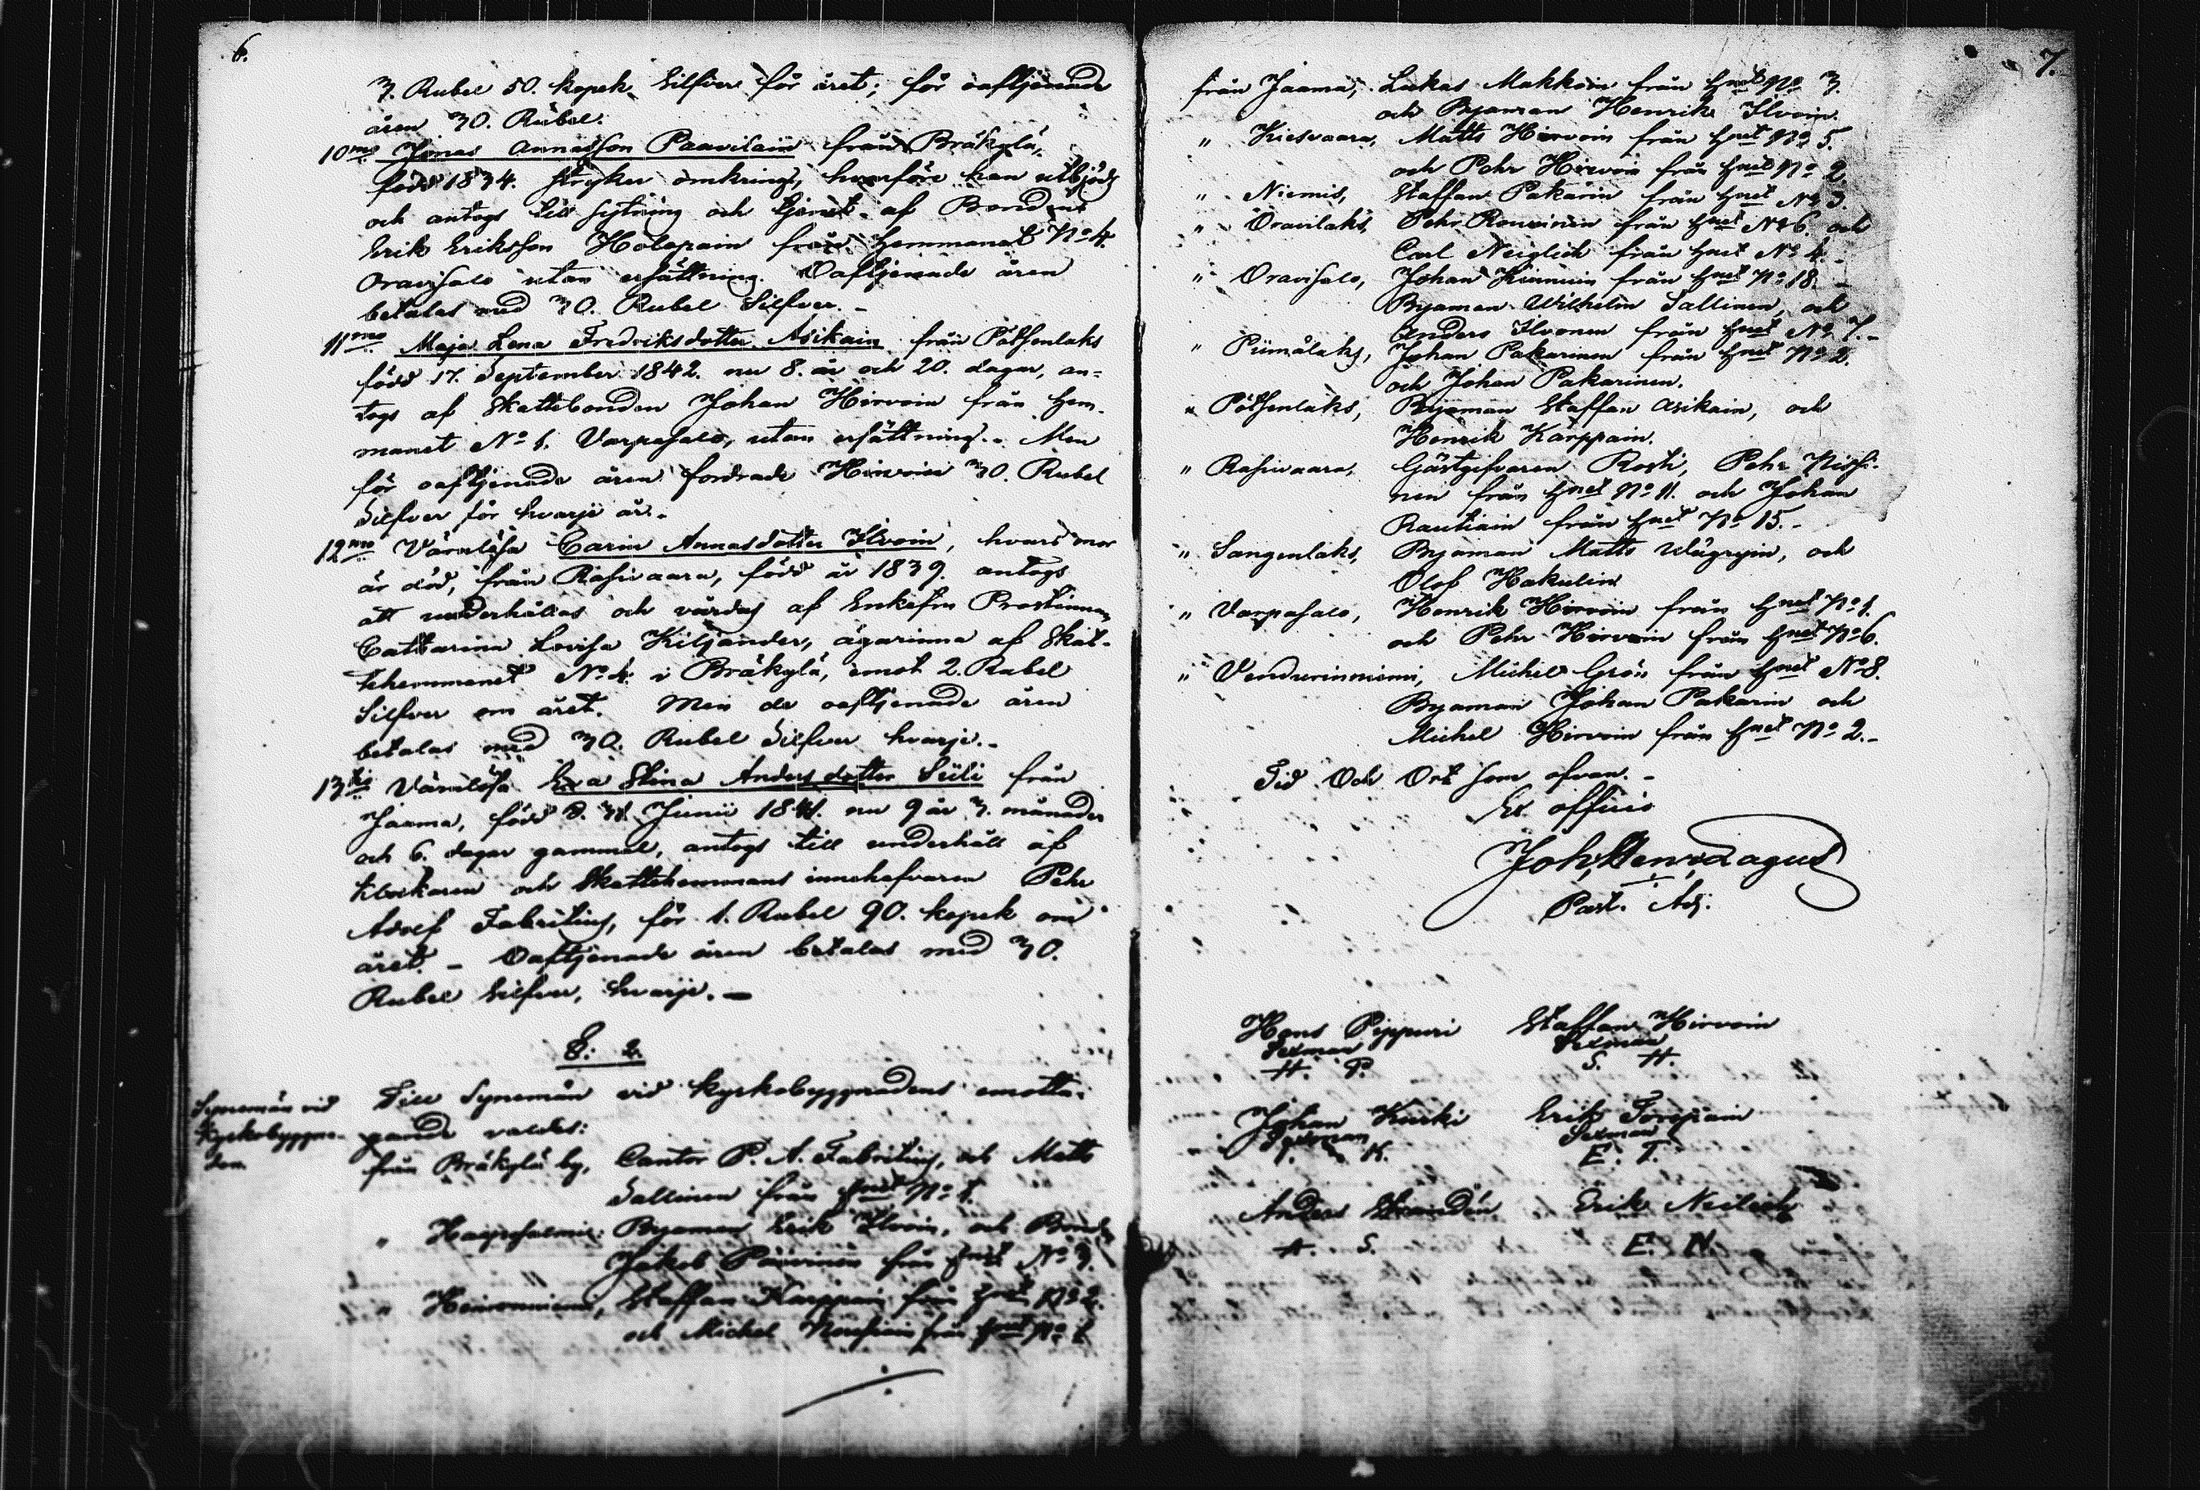 6.
3. Rubel 50. kopek Silfver för året; för oaftjenade
åren 30. Rubel.
10mo Jonas Annasson Paavilain från Bräkylä,
född 1834. stryker omkring, hvarföre han utbjöds
och antogs till sytning och tjenst af Bonden
Erik Eriksson Holopain från Hemmanet No 4.
Oravisalo utan ersättning. Oaftjenade åren
betalas med 30. Rubel Silfver. –
11mo Maja Lena Fredriksdotter Asikain från Pötsenlaks
född 17. September 1842. nu 8. år och 20. dagar, an=
togs af Skattebonden Johan Hirvoin från Hem-
manet No 1. Varpasalo, utan ersättning. – Men
för oaftjenade åren fordrade Hirvoin 30. Rubel
Silfver för hvarje år. –
12mo Värnlösa Carin Annasdotter Ilvoin, hvars mor
är död, från Rasivaara, född år 1839. antogs
att underhållas och vårdas af Enkefru Prostinnan
Catharina Lovisa Kiljander, ägarinna af Skat-
tehemmanet No 4 i Bräkylä, emot 2. Rubel
Silfver om året. Men de oaftjenade åren
betalas med 30. Rubel Silfver hvarje. –
13tio Värnlösa Eva Stina Andersdotter Siili från
Jaama, född d. 31. Junii 1841. nu 9 år 3. månader
och 6. dagar gammal, antogs till underhåll af
Klockaren och Skattehemmans innehafvaren Pehr
Adolf Fabritius, för 1. Rubel 90. kopek om
året. – Oaftjenade åren betalas med 30.
Rubel Silfver, hvarje. –
§. 2.
Synemän vid
Kyrkobyggna-
den
Till Synemän vid kyrkobyggnadens emotta-
gande valdes:
från Bräkylä by, Cantor P. A. Fabritius, och Matts
Sallinen från Hmet No 1.
" Haapasalmi: Byaman Erik Ilvoin, och Bond.
Jakob Päivinen från Hmet No 3.
" Heinoniemi, Staffan Karppain från Hmet No 2.
och Michel Nousiain från Hmet No 1.
7.
från Jaama, Lukas Makkoin från Hmet No 3.
och Byaman Henrik Ilvoin.
" Kiesvaara, Matts Hirvoin från Hmet No 5.
och Pehr Hirvoin från Hmet No 2.
" Niemis, Staffan Pakarin från Hmet No 3.
" Oravilaks, Pehr Rouvinen från Hmet No 6. och
Carl Neiglick från Hmet No 4. –
" Oravisalo, Johan Kinnuin från Hmet No 18. –
Byaman Wilhelm Sallinen, och
Anders Ilvonen från Hmet No 7. –
" Piimälaks, Johan Pakarinen från Hmet No 2.
och Johan Pakarinen.
" Pötsenlaks, Byaman Staffan Asikain, och
Henrik Karppain.
" Rasivaara, Gästgifvaren Rosti, Pehr Nissi-
nen från Hmet No 11. och Johan
Rautiain från Hmet No 15. –
" Sangenlaks, Byaman Matts Wägryin, och
Olof Hakulin
" Varpasalo, Henrik Hirvoin från Hmet No 1.
och Pehr Hirvoin från Hmet No 6.
" Vendurinniemi, Michel Grön från Hmet No 8.
Byaman Johan Pakarin och
Michel Hirvoin från Hmet No 2. –
Tid Och Ort som ofvan. –
Ex officio
Joh. Henr. Lagus
Past. Adj.
Hans Pippuri Staffan Hirvoin
Sexman Sexman
H. P. S. H.
Johan Kurki Erik Toropain
Sexman Sexman
I. K. E. T.
Anders Strandén Erik Neilick
A. S. E. N.